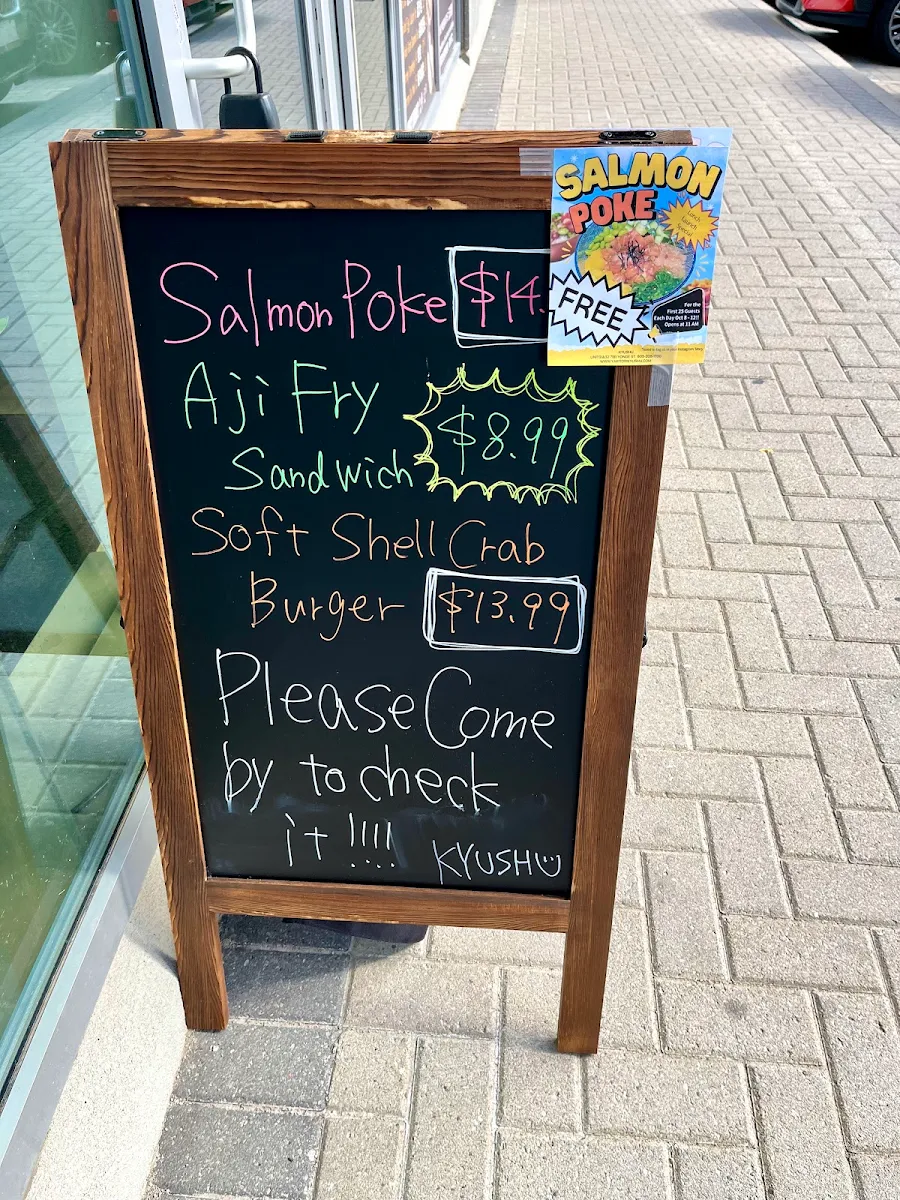 Salmon Poke $14.
Aji Fry
Sandwich $8.99
Soft Shell Crab
Burger $13.99
Please Come
by to check
it !!!!
KYUSHU
SALMON
POKE
Lunch
Launch
Special
FREE
For the
First 25 Guests
Each Day Oct 8 - 12!!
Opens at 11 AM